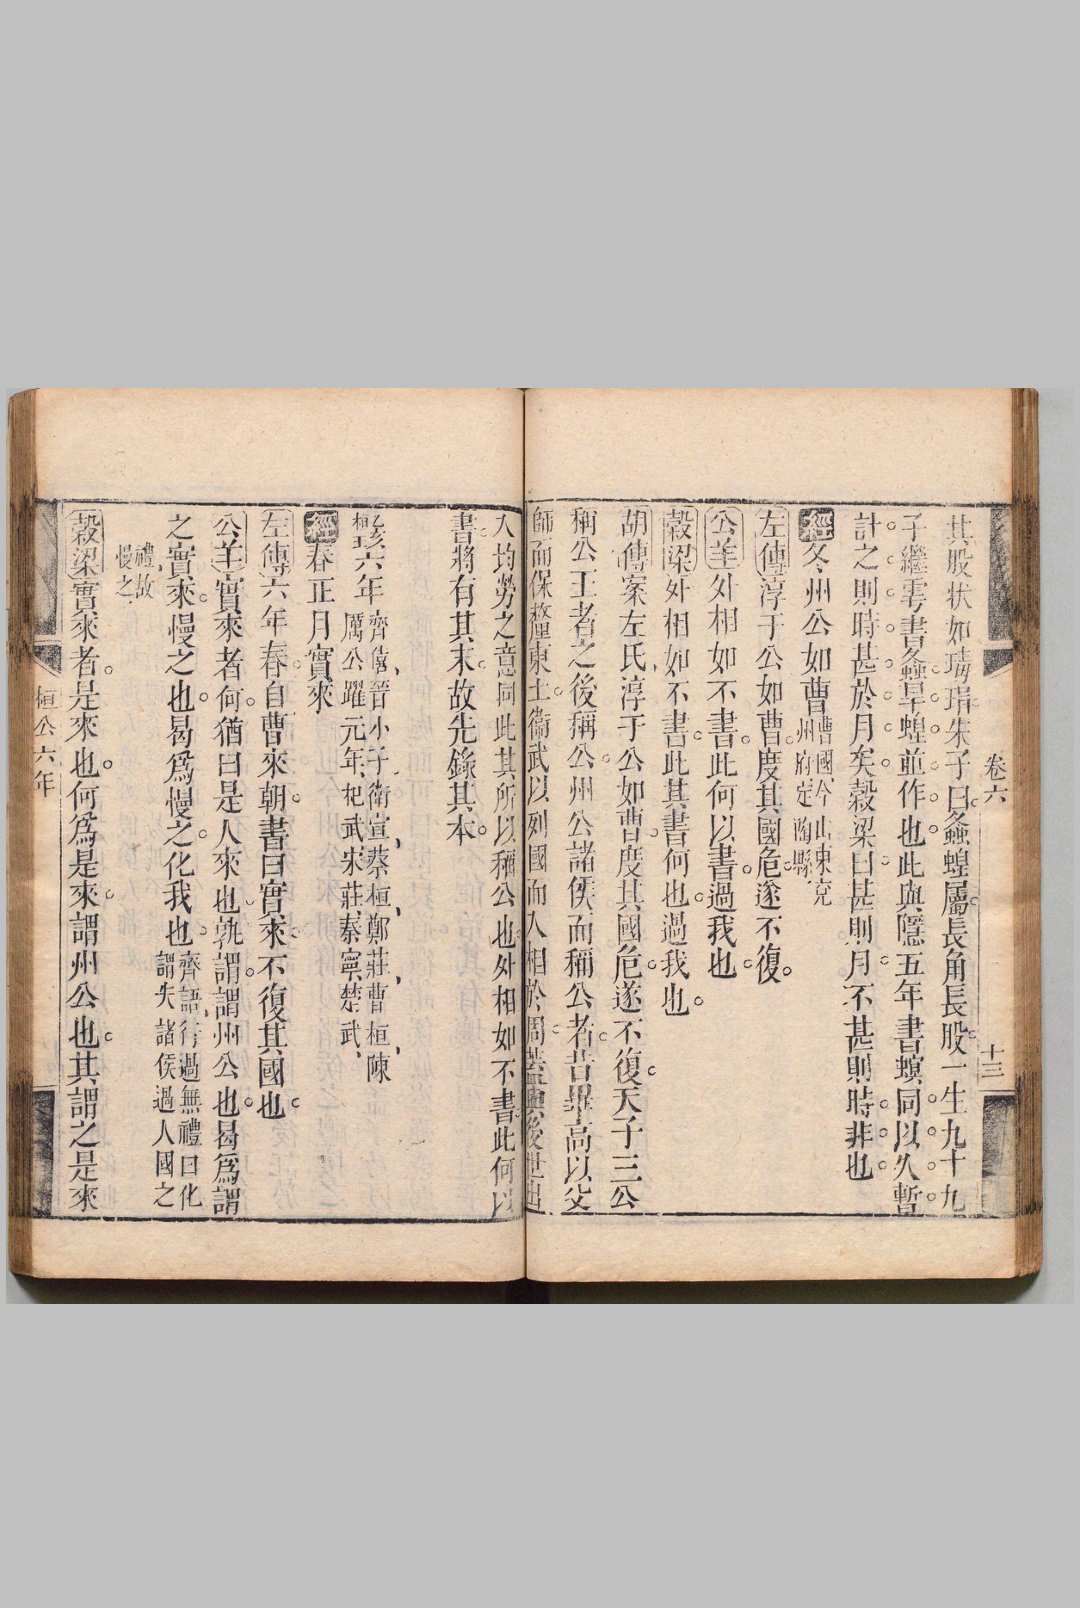 卷六
十三
其股状如瑇瑁朱子曰螽蝗屬長角長股一生九十九
子繼雩書螽旱蝗並作也此與隱五年書螟同以久暫
計之則時甚於月矣穀梁曰甚則月不甚則時非也
經冬州公如曹曹國今山東兖
州府定陶縣
左傳淳于公如曹度其國危遂不復
公羊外相如不書此何以書過我也
穀梁外相如不書此其書何也過我也
胡傳案左氏淳于公如曹度其國危遂不復天子三公
稱公王者之後稱公州公諸侯而稱公者昔畢高以父
師而保釐東土衛武以列國而入相於周蓋與後世出
入均勞之意同此其所以稱公也外相如不書此何以
書將有其末故先錄其本
六年齊僖晉小子衛宣蔡桓鄭莊曹桓陳
厲公躍元年杞武宋莊秦寧楚武
經春正月實來
左傳六年春自曹來朝書曰實來不復其國也
公羊實來者何猶曰是人來也孰謂謂州公也曷爲謂
之實來慢之也曷爲慢之化我也齊語行過無禮曰化
謂失諸侯過人國之
禮故
慢之
穀梁實來者是來也何爲是來謂州公也其謂之是來
桓公六年